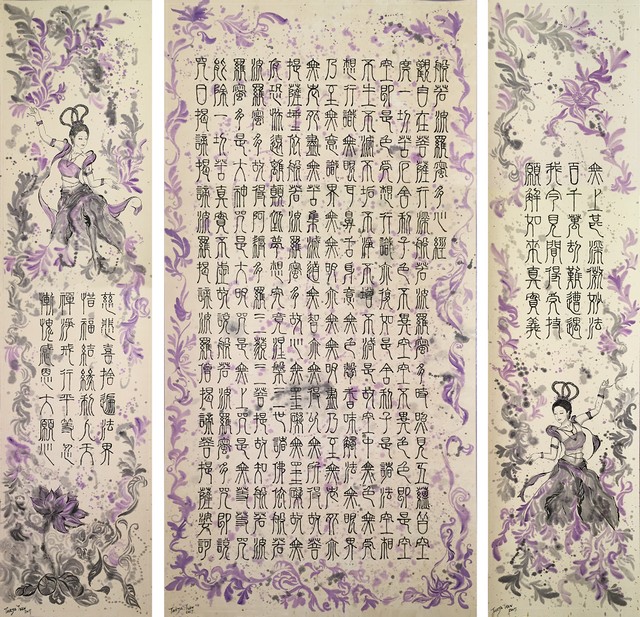 無上甚深微妙法
百千萬劫難遭遇
我今見聞得受持
願解如來真實義
般若波羅蜜多心經
觀自在菩薩行深般若波羅蜜多時照見五蘊皆空
度一切苦厄舍利子色不異空空不異色色即是空
空即是色受想行識亦復如是舍利子是諸法空相
不生不滅不垢不淨不增不減是故空中無色無受
想行識無眼耳鼻舌身意無色聲香味觸法無眼界
乃至無意識界無無明亦無無明盡乃至無老死亦
無老死盡無苦集滅道無智亦無得以無所得故菩
提薩埵依般若波羅蜜多故心無罣礙無罣礙故無
有恐怖遠離顛倒夢想究竟涅槃三世諸佛依般若
波羅蜜多故得阿耨多羅三藐三菩提故知般若波
羅蜜多是大神咒是大明咒是無上咒是無等等咒
能除一切苦真實不虛故說般若波羅蜜多咒即說
咒曰揭諦揭諦波羅揭諦波羅僧揭諦菩提薩婆訶
慈悲喜捨遍法界
惜福結緣利人天
禪淨戒行平等忍
慚愧感恩大願心